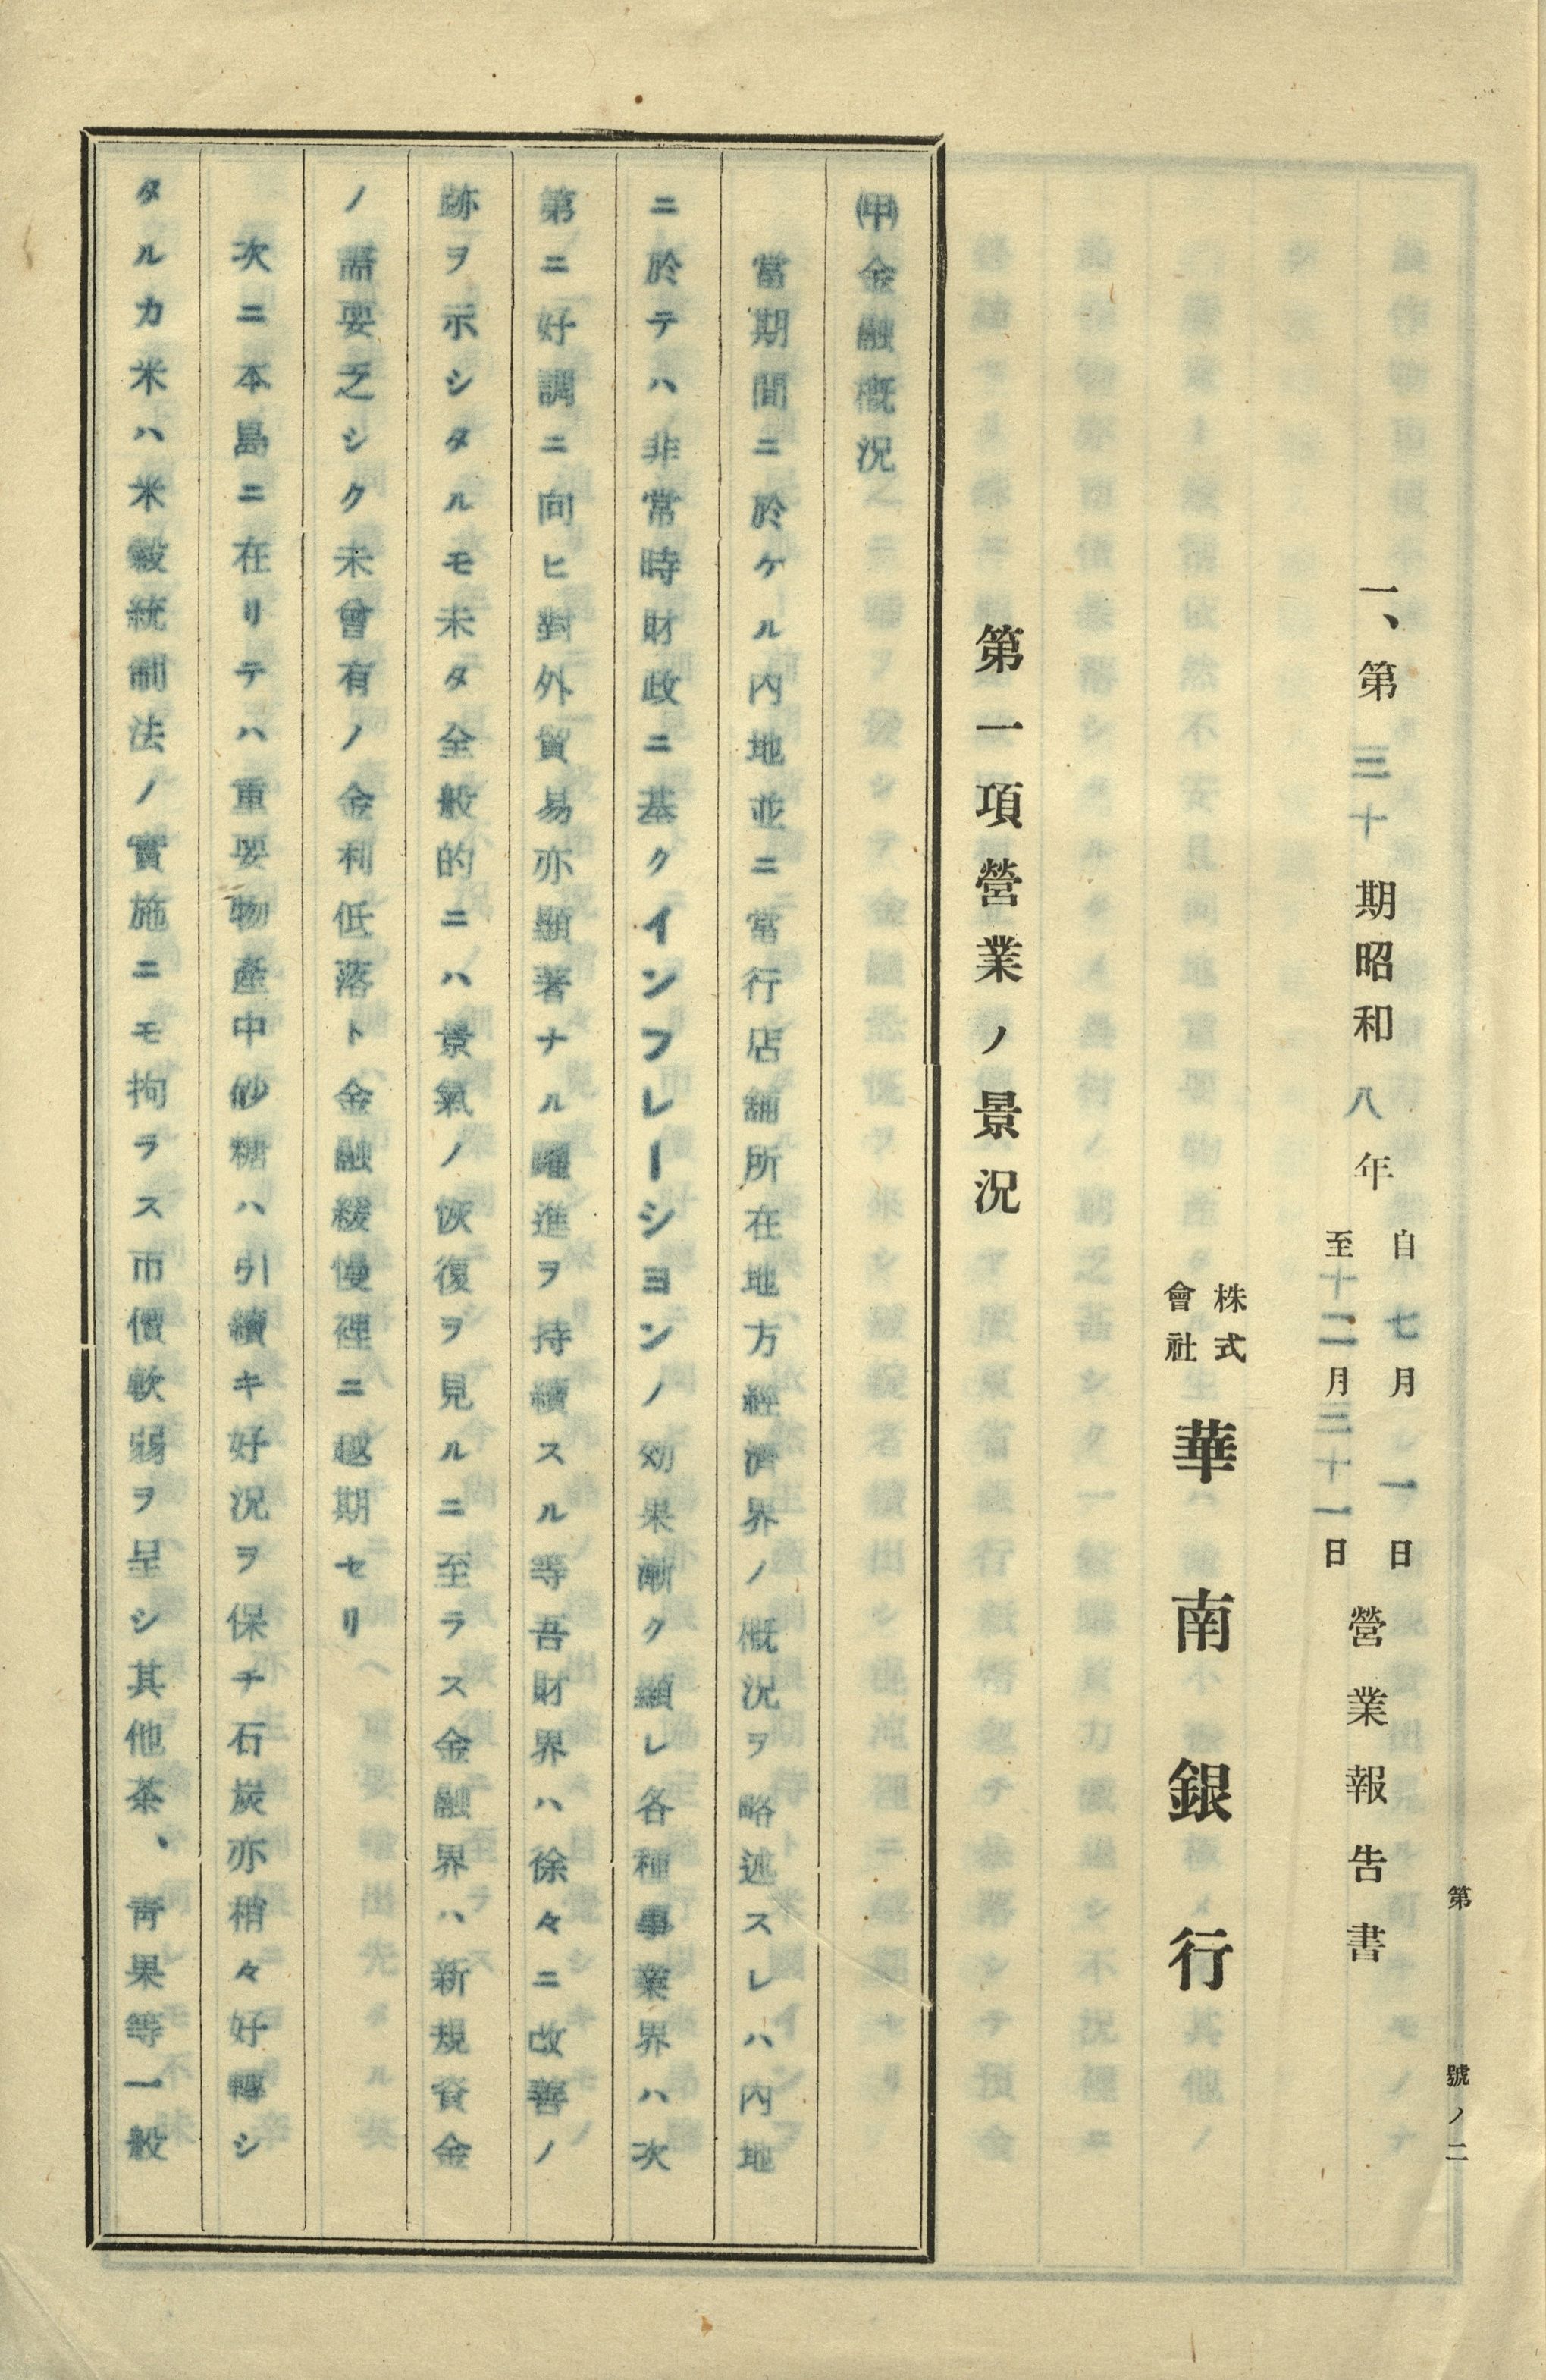 第　　號ノ二
一、第三十期昭和八年自七月一日至十二月三十一日營業報告書
株式會社華南銀行
第一項營業ノ景況
㈙金融概況
當期間ニ於ケル內地並ニ當行店舖所在地方經濟界ノ概況ヲ略述スレハ內地
ニ於テハ非常時財政ニ基クインフレーシヨンノ効果漸ク顯レ各種事業界ハ次
第ニ好調ニ向ヒ對外貿易亦顯著ナル躍進ヲ持續スル等吾財界ハ徐々ニ改善ノ
跡ヲ示シタルモ未タ全般的ニハ景氣ノ恢復ヲ見ルニ至ラス金融界ハ新規資金
ノ需要乏シク未曾有ノ金利低落ト金融緩慢裡ニ越期セリ
次ニ本島ニ在リテハ重要物產中砂糖ハ引續キ好況ヲ保チ石炭亦稍々好轉シ
タルカ米ハ米穀統制法ノ實施ニモ拘ラス市價軟弱ヲ呈シ其他茶、靑果等一般